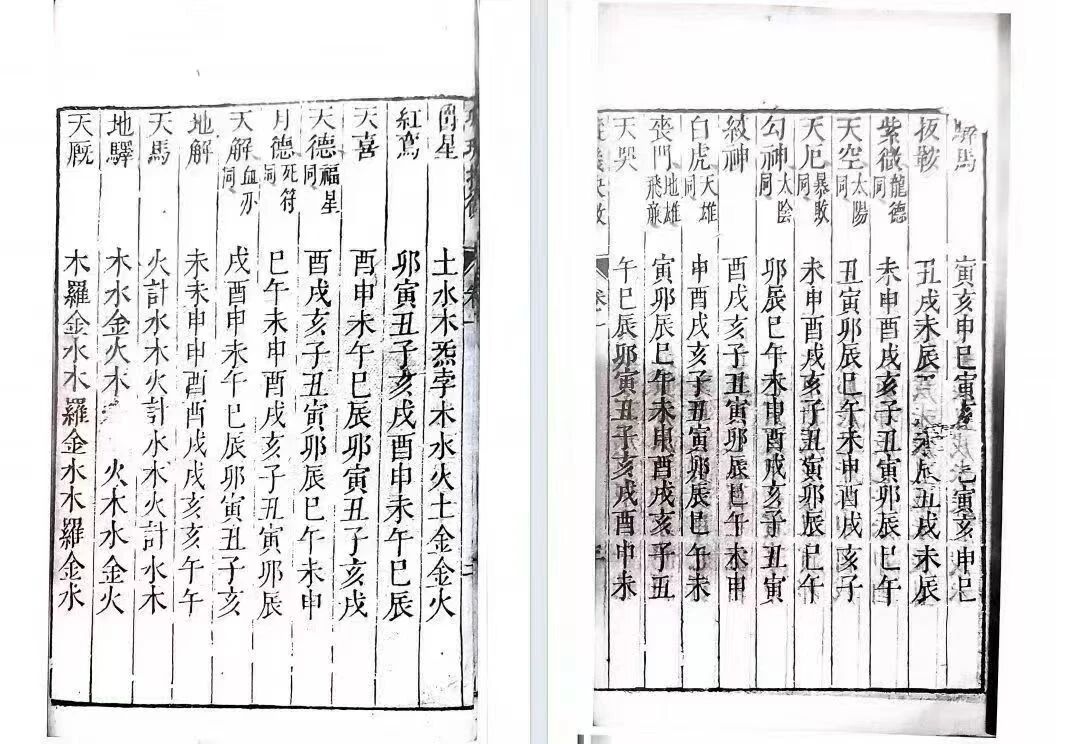 國星 土水木炁孛木水火土金金火
紅鸞 卯寅丑子亥戌酉申未午巳辰
天喜 酉申未午巳辰卯寅丑子亥戌
天德 福星同 酉戌亥子丑寅卯辰巳午未申
月德 死符同 巳午未申酉戌亥子丑寅卯辰
天解 血刃同 戌酉申未午巳辰卯寅丑子亥
地解 未未申申酉酉戌戌亥亥午午
天馬 火計水木火計水木火計水木
地驛 木水金火木 火木水金火
天厩 木羅金水木羅金水木羅金水
驛馬 寅亥申巳寅亥申巳寅亥申巳
扳鞍 丑戌未辰丑戌未辰丑戌未辰
紫微 龍德同 未申酉戌亥子丑寅卯辰巳午
天空 太陽同 丑寅卯辰巳午未申酉戌亥子
天厄 暴敗同 未申酉戌亥子丑寅卯辰巳午
勾神 太陰同 卯辰巳午未申酉戌亥子丑寅
絞神 酉戌亥子丑寅卯辰巳午未申
白虎 天雄同 申酉戌亥子丑寅卯辰巳午未
喪門 地雄飛廉 寅卯辰巳午未申酉戌亥子丑
天哭 午巳辰卯寅丑子亥戌酉申未
卷一